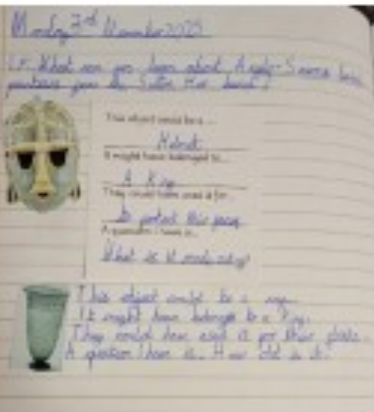 Monday 3rd November 2025
LF: What can you learn about Anglo-Saxons
from the Sutton Hoo burial?
This object could be a ...
Helmet
It might have belonged to...
A King
They could have used it for...
to protect their
A question I have is...
What is it made
This object could be a
It might have belonged to a King.
They could have used it for their
A question I have is... How old is it.